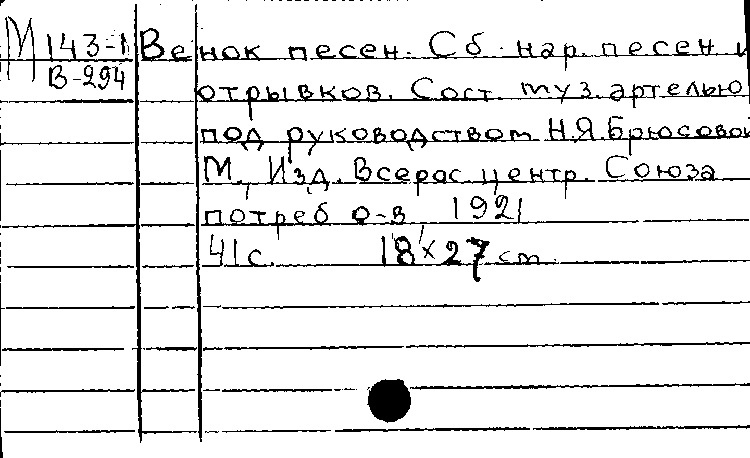 М 143-1 Венок песен. Сб. нар. песен и
В-294 отрывков. Сост. муз. артелью
под руководством Н.Я. Брюсовой
М., Изд. Всерос. центр. Союза
потреб о-в, 1921
41 с. 18×27 см